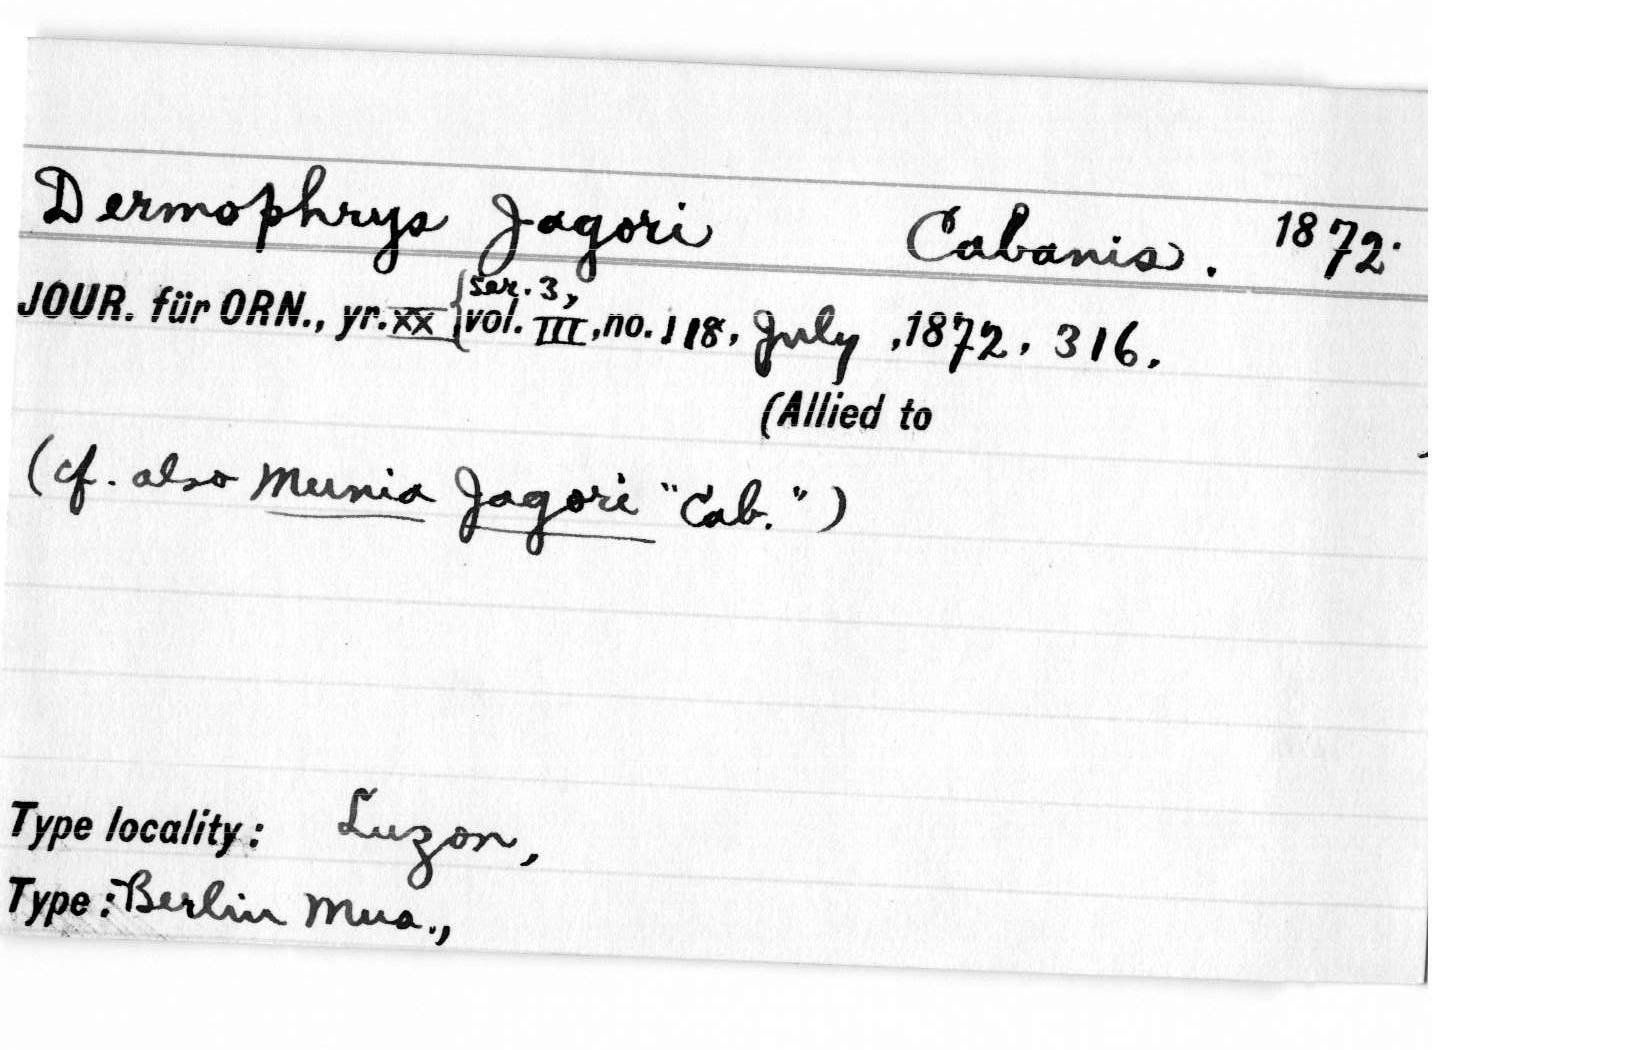 Dermophrys Jagori Cabanis. 1872.
JOUR. für ORN., yr. XX { ser. 3, vol. III, no. 118, July, 1872, 316.
(Allied to
(cf. also Munia Jagori "Cab.")
Type locality: Luzon,
Type: Berlin Mus.,